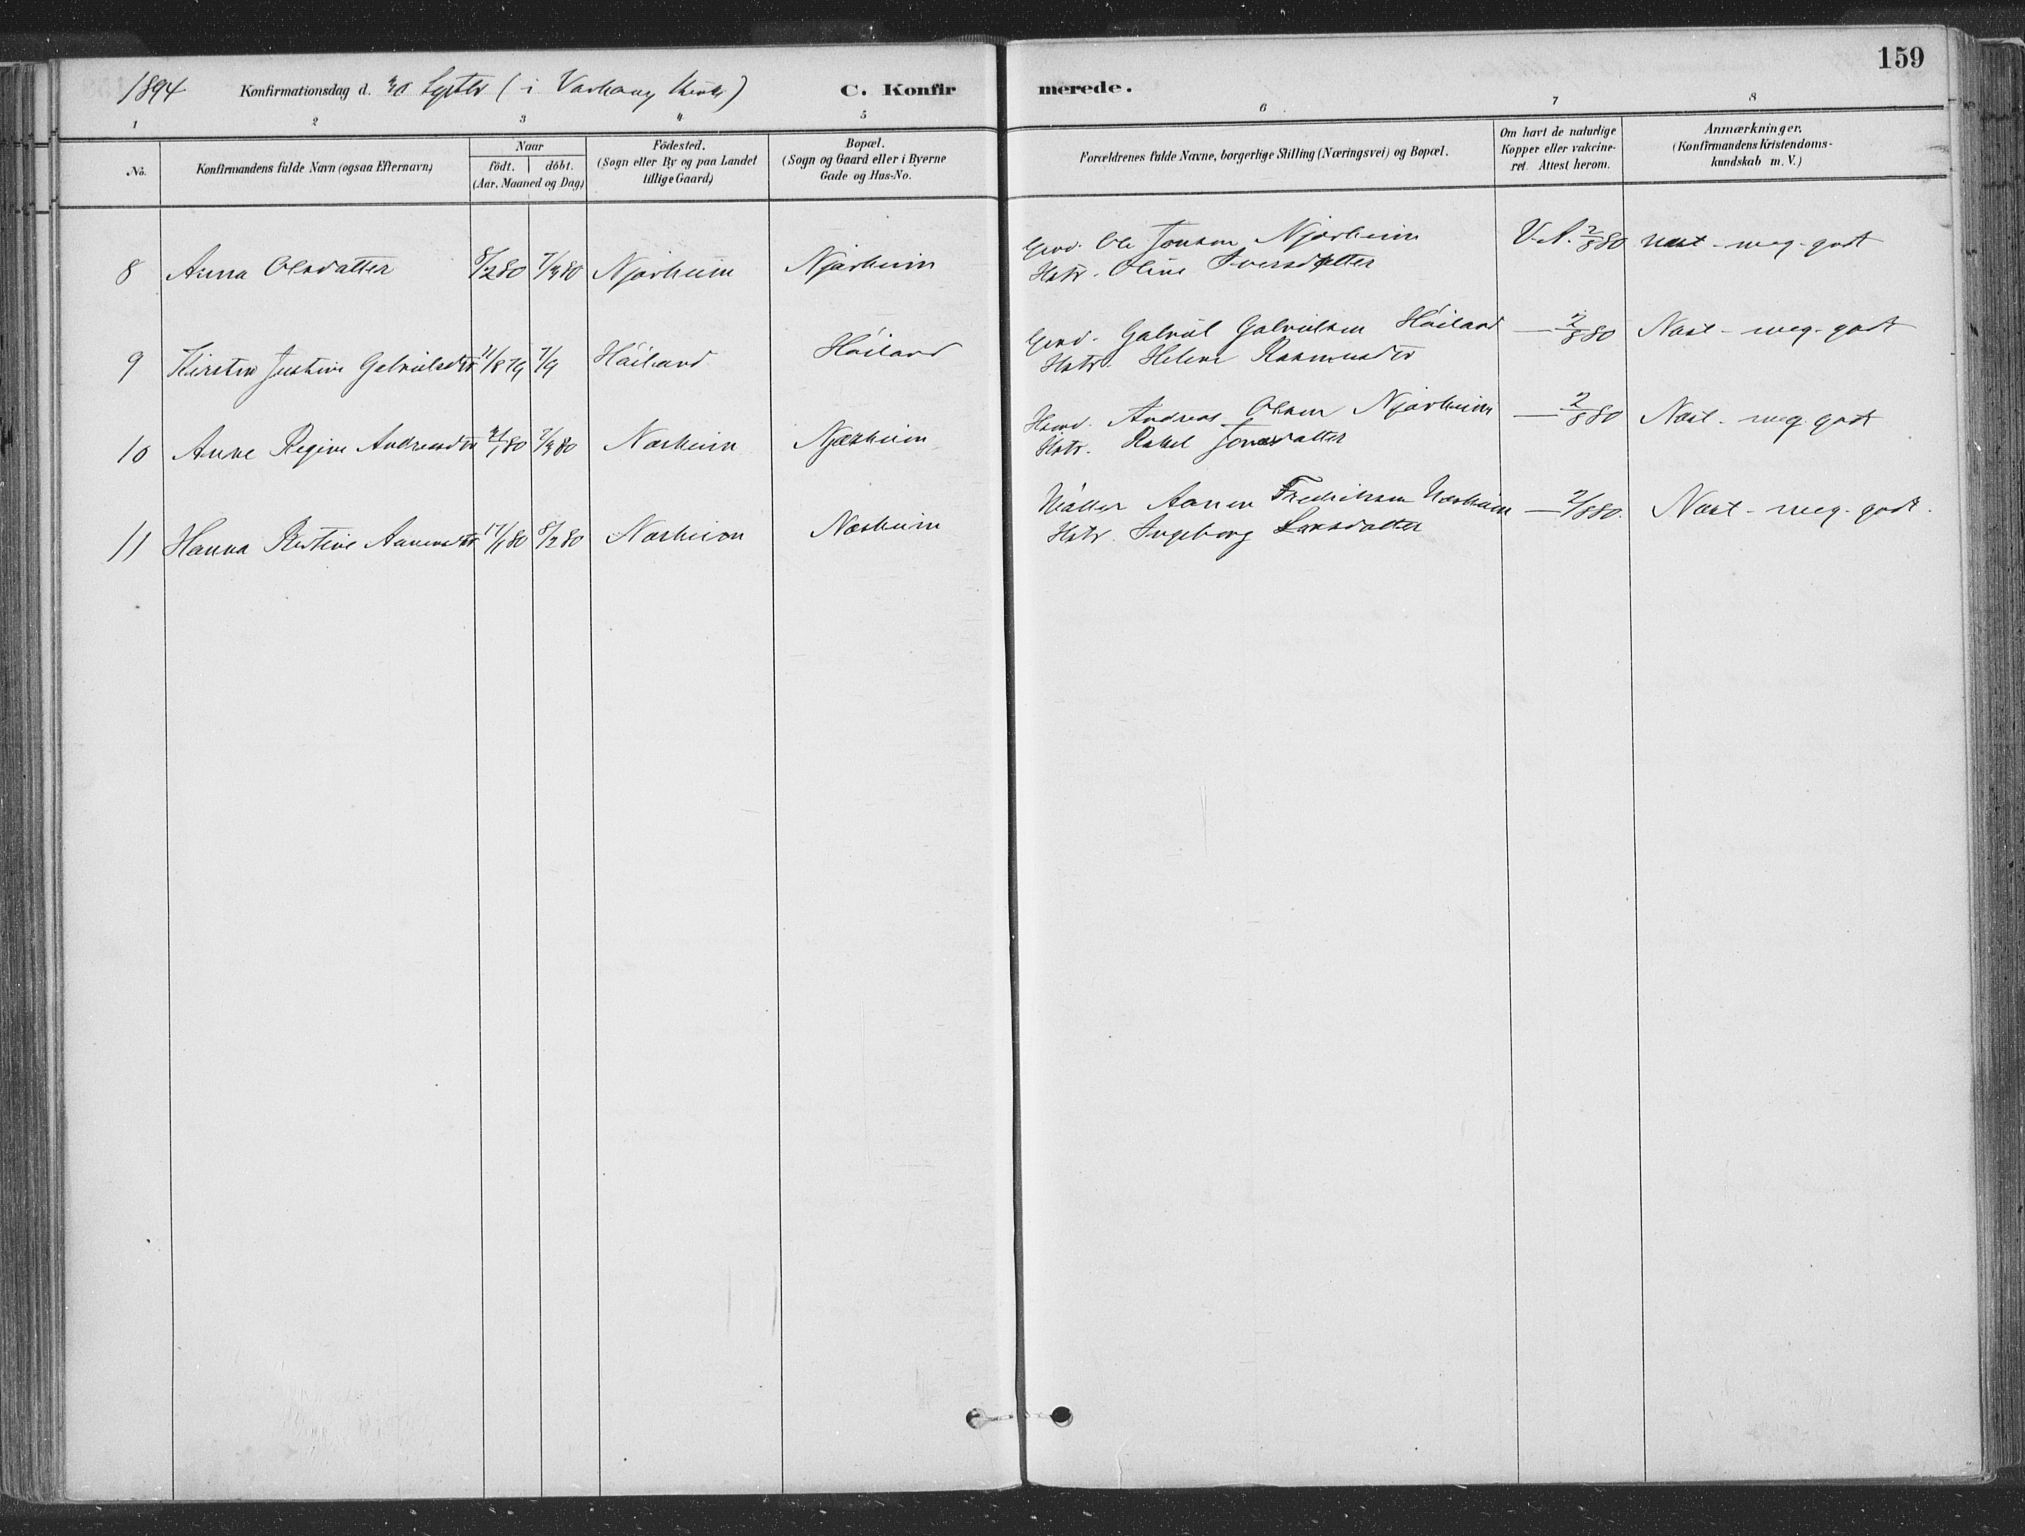 1894 Konfirmationsdag d. 30 Septbr ( i Varhaug Kirke ) C. Konfir merede. 159
1 2 3 4 5 6 7 8
No. Konfirmandens fulde Navn (ogsaa Efternavn) Naar födt. döbt. (Aar, Maaned og Dag) Födested. (Sogn eller By og paa Landet tillige Gaard) Bopæl. (Sogn og Gaard eller i Byerne Gade og Hus-No. Forældrenes fulde Navne, borgerlige Stilling (Næringsvei) og Bopæl. Om havt de naturlige Kopper eller vakcineret. Attest herom. Anmærkninger. (Konfirmandens Kristendomskundskab m. V.)
Grd. Ole Jonsen Njærheim V.A. 2/8 80 Næst - meg. godt
8 Anna Olsdatter 8/2 80 7/3 80 Njærheim Njærheim Hstr. Oline Iversdatter
Grd. Gabriel Gabrielsen Höiland — 2/8 80 Næst - meg. godt
9 Kirsten Justine Gabrielsdtr 11/8 79 7/9 Höiland Höiland Hstr. Helene Rasmusdtr
Andreas Olsen Njærheim — 2/8 80 Næst - meg. godt
10 Anne Regine Andreasdtr 80 7/3 80 Nærheim Njærheim Hstr. Rakel Jonasdatter
Möller Aanen Fredriksen Nærheim — 2/8 80. Næst - meg. godt.
11 Hanna Kistine Aanensdtr 17/1 80 8/2 80 Nærheim Nærheim Hstr. Ingeborg Larsdatter